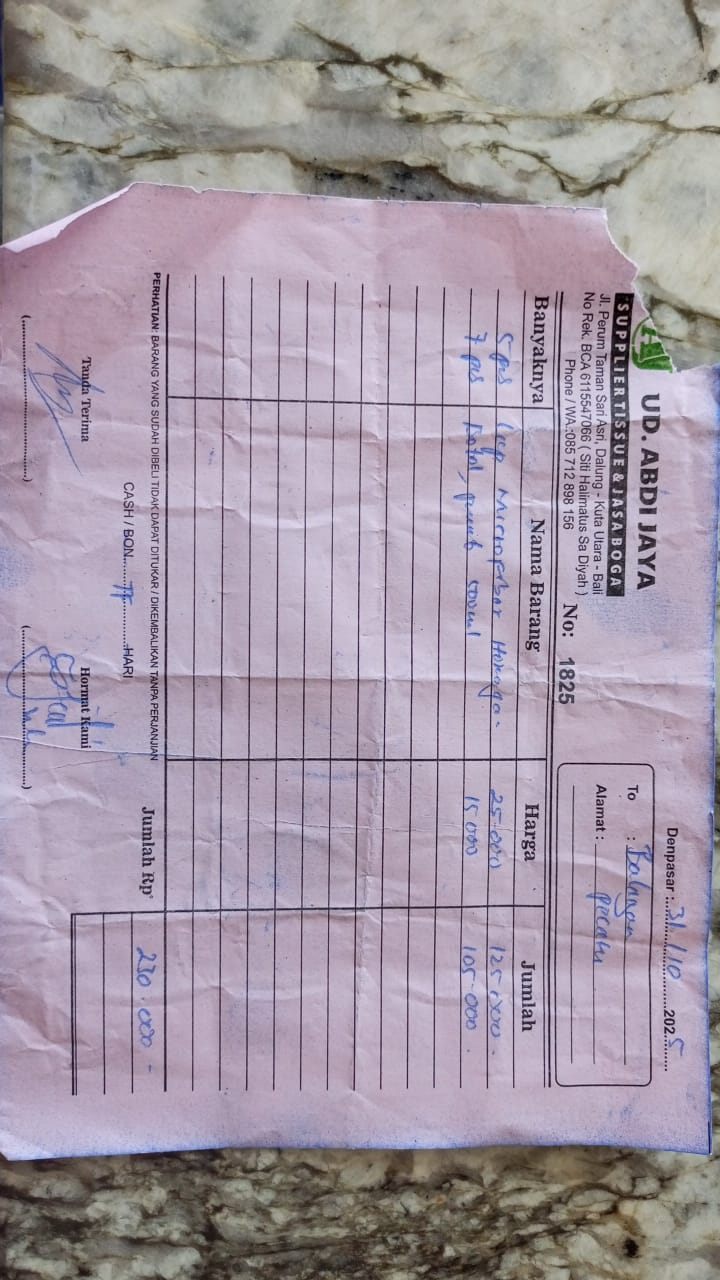 UD. ABDI JAYA
SUPPLIER TISSUE & JASA BOGA
Jl. Perum Taman Sari Asri, Dalung - Kuta Utara - Bali
No Rek. BCA 6115547066 ( Siti Halimatus Sa Diyah )
Phone / WA:085 712 898 156
No: 1825
Denpasar : 31/10 2025
To :
Alamat :
Banyaknya Nama Barang Harga Jumlah
5 pcs 25.000 125.000.
7 pcs 15.000 105.000.
Jumlah Rp 230.000 -
PERHATIAN: BARANG YANG SUDAH DIBELI TIDAK DAPAT DITUKAR / DIKEMBALIKAN TANPA PERJANJIAN
CASH / BON HARI
Tanda Terima Hormat Kami